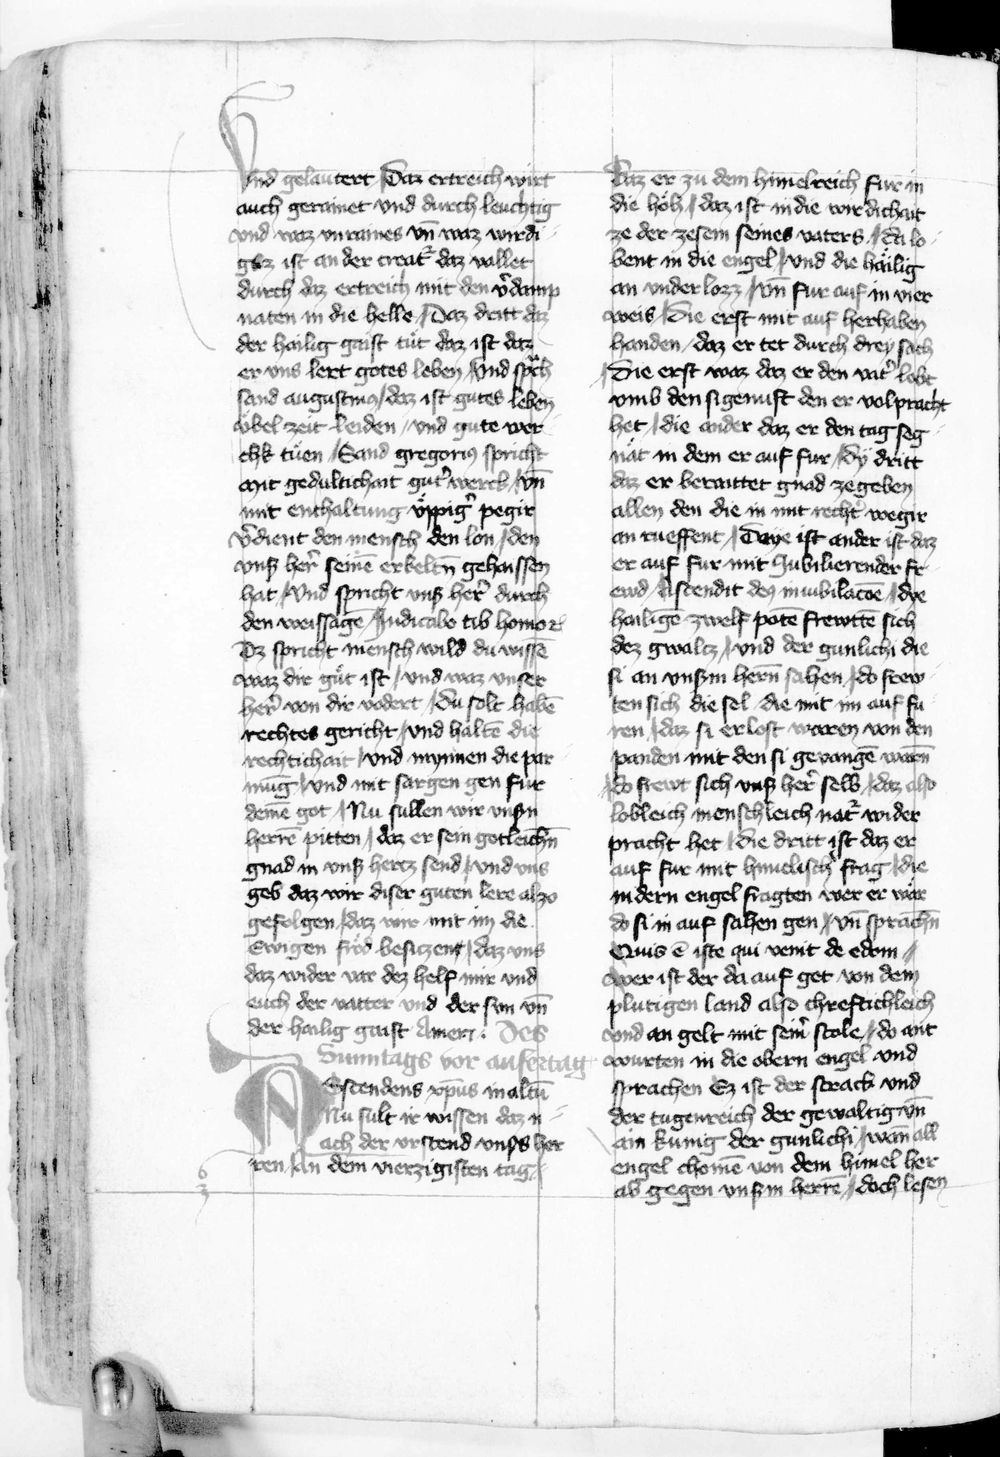 Vnd gelautert / Daz ertreich wirt
auch gerainet vnd durch leuchtig
vnd waz vnraines vn̄ waz wirdi
gez ist an der creat᷑ daz vallet
durch daz ertreich mit den v᷑damp
naten in die helle / Daz dritt daz
der hailig gaist tuͤt daz ist daz
er vns lert gotes leben / Vnd sp᷑ch
sand augustinꝰ / daz ist gutes leben
vbel zeit leiden / vnd gute wer
chk tuͤen / Sand gregoriꝰ spricht
Mit gedultichait gut᷑ werch / vn̄
mit enthaltung uͤppig᷑ pegir
v᷑dient den mensch den lon / den
vnß her᷑ seinē erbeltn̄ gehaissen
hat / Vnd spricht vnß her᷑ durch
den weissagē / Judicabo tib homo
Dz spricht mensch wild du wissē
waz dir guͤt ist / vnd waz vnser
her᷑ von dir vodert / Du solt habē
rechtes gericht / vnd haltē die
rechtichait / vnd mynnen die par
mūg / vnd mit sargen gen fur
deinē got / Nu sullen wir vnßn
herrē pitten / daz er sein gotleichn̄
gnad in vnß hertz send / vnd vns
geb daz wir diser guten lere alzo
gefolgen / daz wir mit im die
Ewigen frod besitzent / daz vns
daz wider var dez helf mir vnd
euch der vatter vnd der sun vn̄
der hailig gaist Amen : Des
Sunntags vor aufertag
AScendens xp̄us in altū
Nu sult ir wissen daz n
ach der vrstend vnsßs her
ren / An dem vierzigisten tag /
Daz er zu dem himelreich fur in
die hoͤh / daz ist in die wirdichait
ze der zesem seines vaters / da lo
bent in die engel / vnd die haͤilig
an vnderlozz / vn̄ fur auf in vier
weis / Die erst mit auf herhaben
handen / daz er tet durch drey sach
/ Die erst waz daz er den vat᷑ lobt
vmb den sigenuft den er volpracht
het / die ander daz er den tag seg
nat in dem er auf fur / dÿ dritt
daz er beraittet gnad ze geben
allen den die in mit recht᷑ wegir
an rueffent / Daye ist ander ist daz
er auf fur mit Jubilierender fr
ewd / Ascendit deꝰ in iubilacōe / dye
hailigē zwelf potē frewtē sich
dez gwaltz / vnd der gunlichi die
si an vnßm hern̄ sahen / do frew
ten sich die sel die mit im auf fu
ren / daz si erlost waren von den
panden mit den si gevangē warn̄
/ do frewt sich vnß her᷑ selb / daz also
lobleich menschleich nat᷑ wider
pracht het / die dritt ist daz er
auf fur mit himelisch᷑ frag / die
indern engel fragten wer er wär
do si in auf sahen gen / vn̄ sprachn̄
Quis ē iste qui venit de edom /
wer ist der da auf get von dem
plutigen land also chreftichleich
vnd an gelt mit sein᷑ stole / do ant
wurten in die obern engel vnd
sprachen Ez ist der starck vnd
der tugenreich der gewaltig vn̄
ain kunig der gunlichi / wan̄ all
engel chomē von dem himel her
ab gegen vnßm herrē / doch lesen